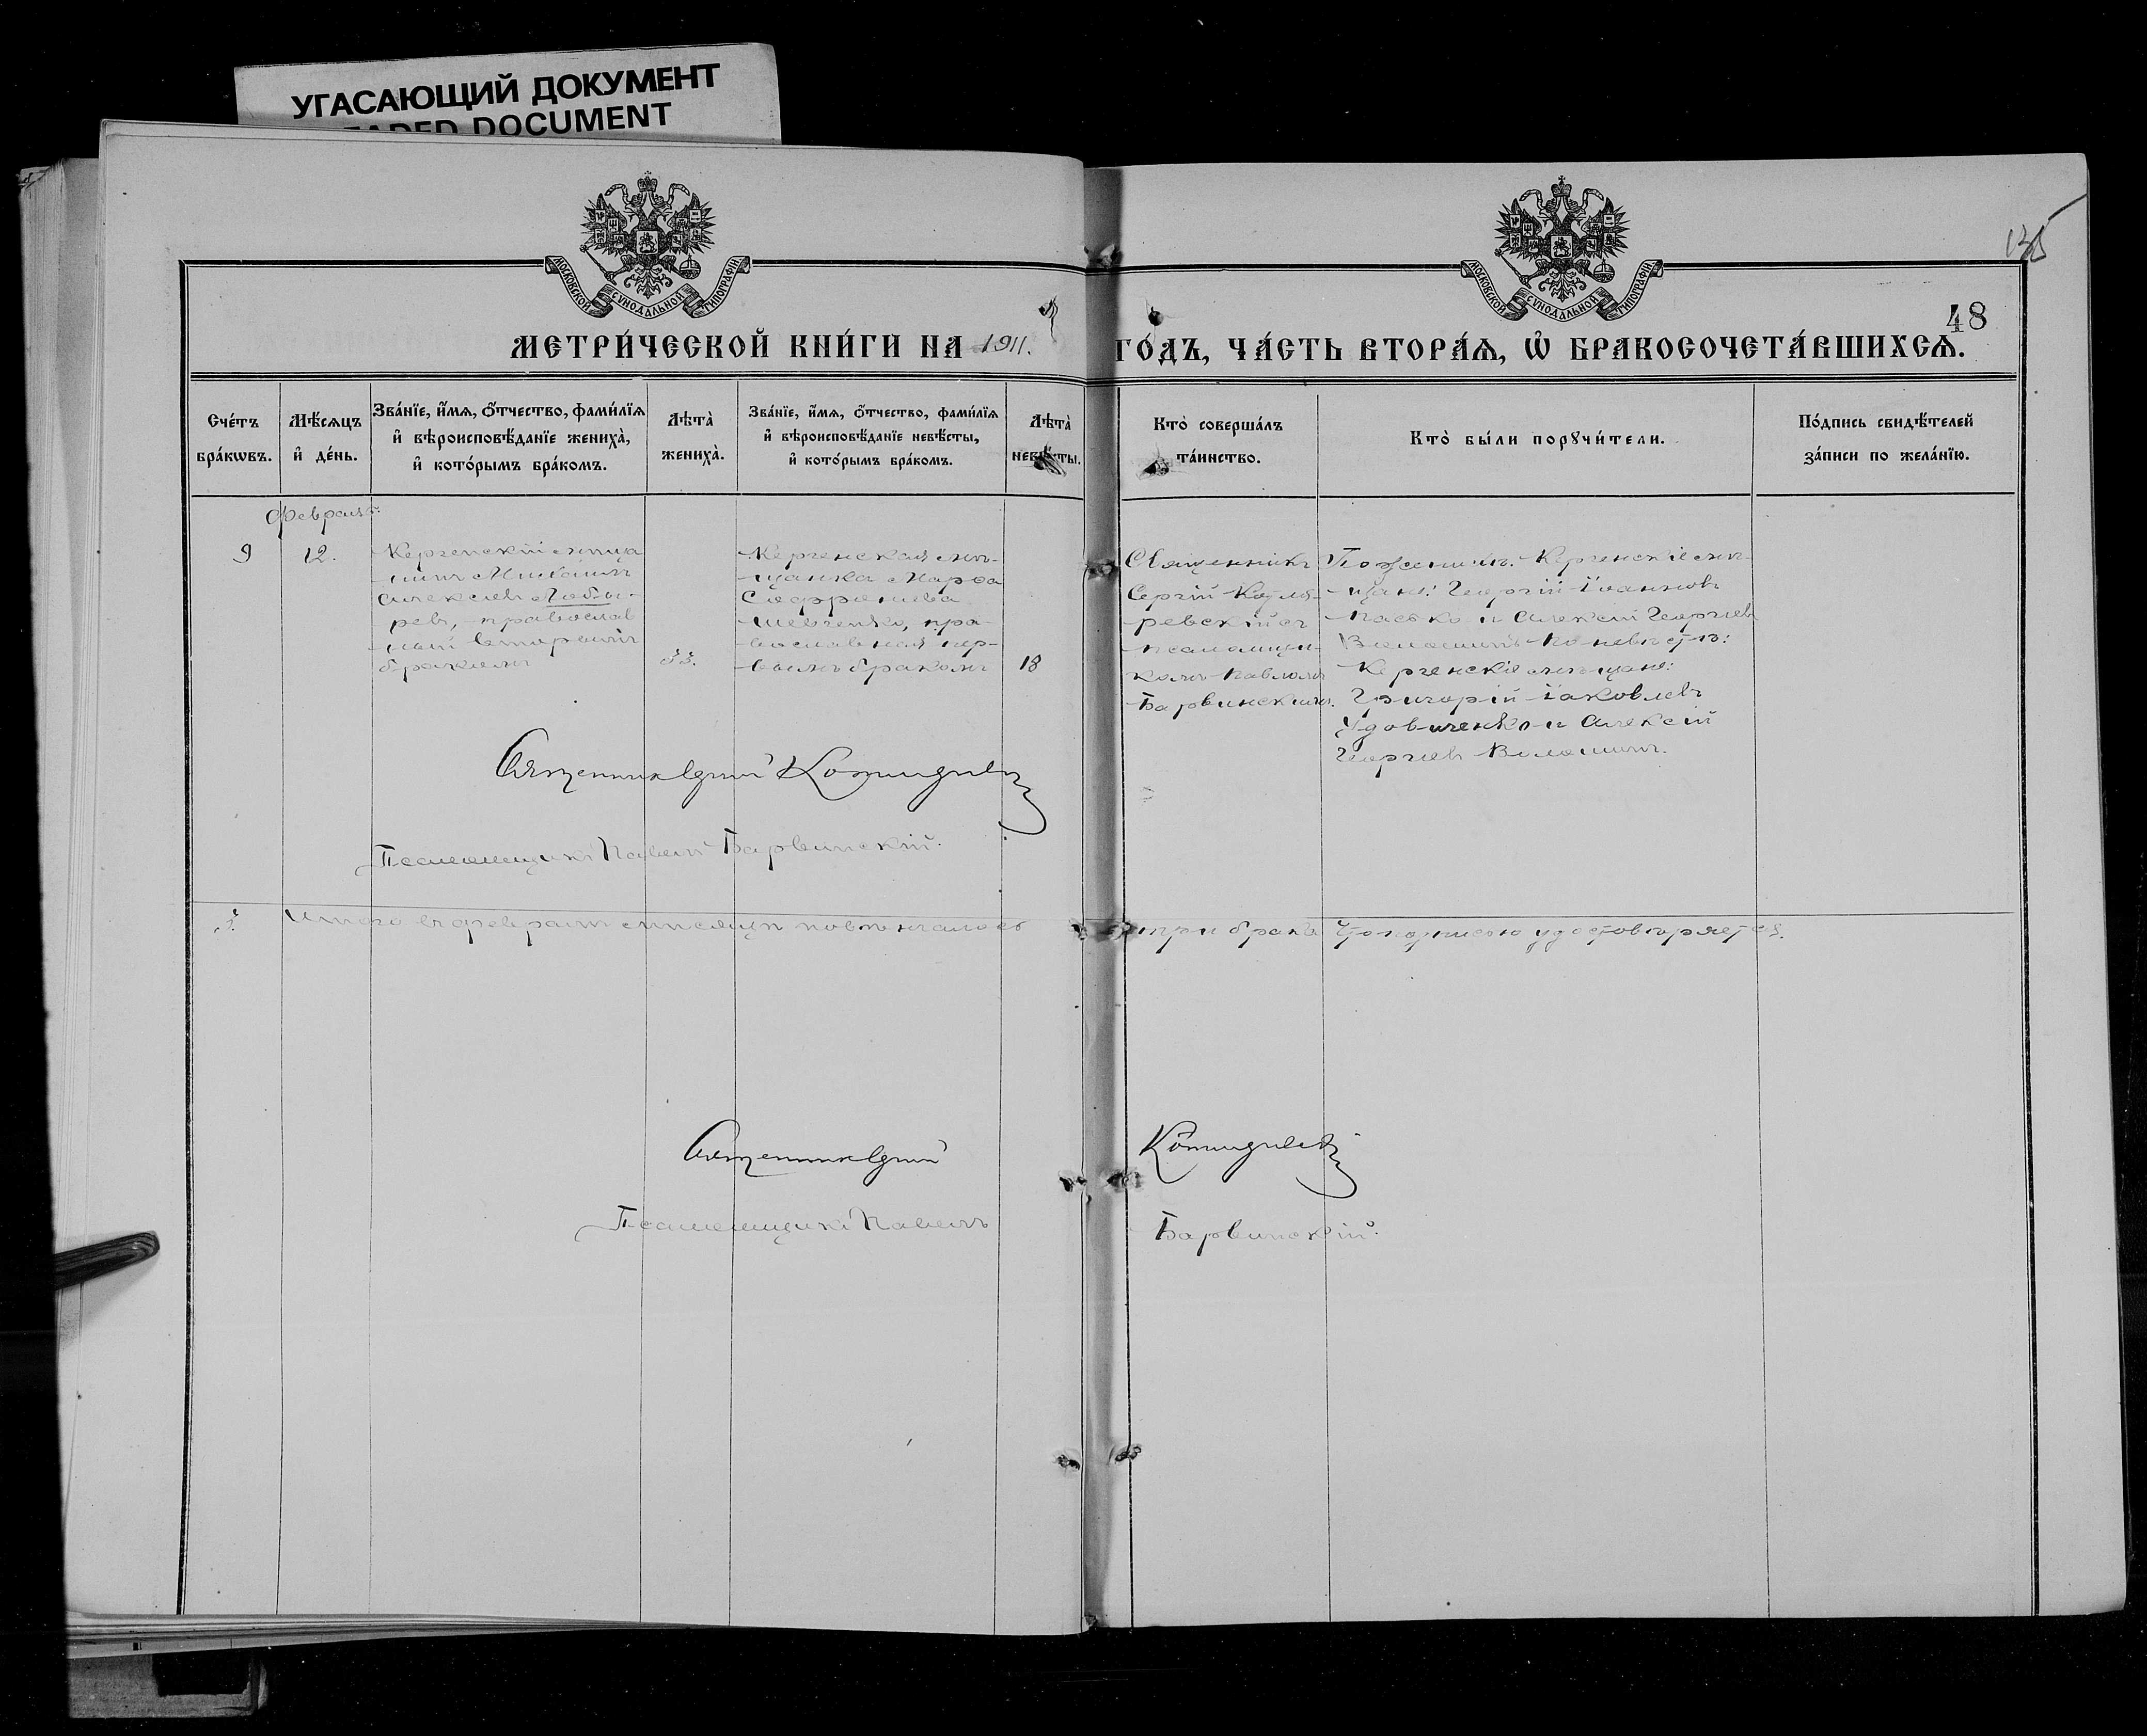 УГАСАЮЩИЙ ДОКУМЕНТ
FADED DOCUMENT
МОСКОВСКОЙ СѴНОДАЛЬНОЙ ТИПОГРАФІИ
МОСКОВСКОЙ СѴНОДАЛЬНОЙ ТИПОГРАФІИ
135
48
МЕТРИ́ЧЕСКОЙ КНИ́ГИ НА 1911. ГО́ДЪ, ЧА́СТЬ ВТОРА́Ѧ, Ѡ҆ БРАКОСОЧЕТА́ВШИХСѦ.
Сче́тъ
бра́кѡвъ.
Мѣ́сѧцъ
и҆ де́нь.
Зва́нїе, и҆́мѧ, ѻ҆́тчество, фами́лїѧ
и҆ вѣроисповѣ́данїе жениха̀,
и҆ кото́рымъ бра́комъ.
Лѣта̀
жениха̀.
Зва́нїе, и҆́мѧ, ѻ҆́тчество, фами́лїѧ
и҆ вѣроисповѣ́данїе невѣ́сты,
и҆ кото́рымъ бра́комъ.
Лѣта̀
невѣ́сты.
Кто̀ соверша́лъ
та́инство.
Кто̀ бы́ли порꙋчи́тели.
По́дпись свидѣ́телей
за́писи по жела́нїю.
Февраль.
9
12.
Керченскій мѣща
нинъ Михаилъ
Алексіевъ Лобы-
ревъ, православ
ный вторымъ
бракомъ
33.
Керченская мѣ-
щанка Марѳа
Софроніева
Шевченко, пра-
вославная пер-
вымъ бракомъ
18
Священникъ
Сергій
съ
псаломщи-
комъ Павломъ
Барвинскимъ.
По женихѣ: Керченскіе мѣ-
щане: Георгій Іоанновъ
и Алексій Георгіев
Волошинъ По невѣстѣ:
Керченскіе мѣщане:
Григорій Іаковлевъ
Удовиченко и Алексій
Георгіевъ Волошинъ.
Священникъ Сергій
Псаломщикъ Павелъ Барвинскій.
3. Итого въ февралѣ мѣсяцѣ повѣнчалось три брака Что подписью удостовѣряется.
Священникъ Сергій
Псаломщикъ Павелъ Барвинскій.